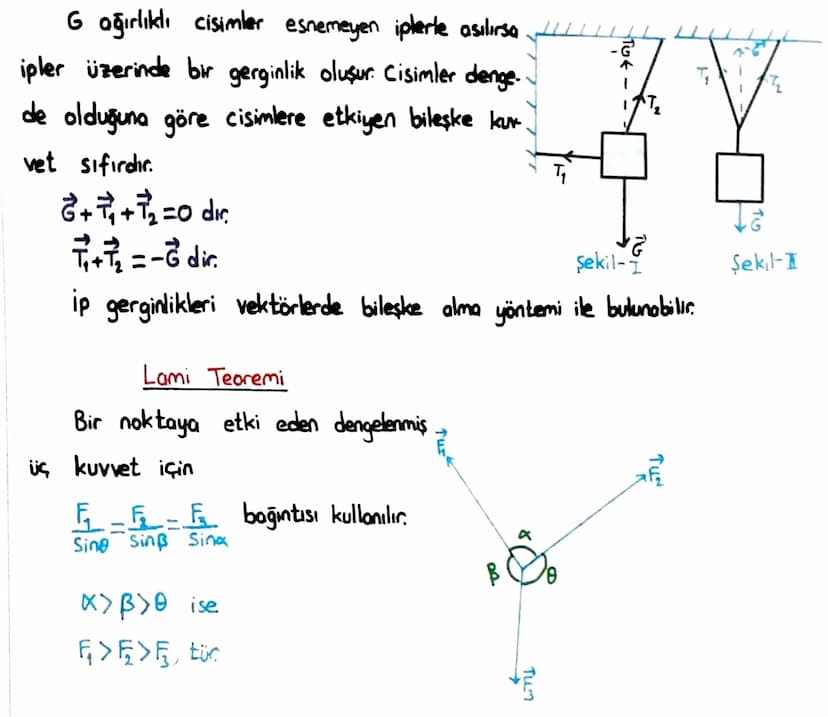 G ağırlıklı cisimler esnemeyen iplerle asılırsa
ipler üzerinde bir gerginlik oluşur. Cisimler denge-
de olduğuna göre cisimlere etkiyen bileşke kuv-
vet sıfırdır.
G⃗+T⃗₁+T⃗₂=0 dır.
T⃗₁+T⃗₂ = -G⃗ dir.
-G⃗
T₂
T₁
G⃗
Şekil-I
-G⃗
T₁
T₂
G⃗
Şekil-II
İp gerginlikleri vektörlerde bileşke alma yöntemi ile bulunabilir.
Lami Teoremi
Bir noktaya etki eden dengelenmiş
üç kuvvet için
F₁/Sinθ = F₂/Sinβ = F₃/Sinα bağıntısı kullanılır.
α>β>θ ise
F₁>F₂>F₃, tür.
F⃗₁
F⃗₂
α
β
θ
F⃗₃